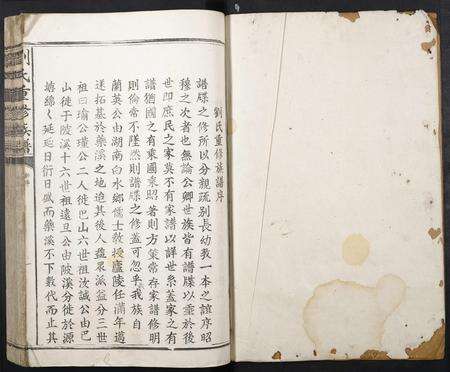 劉氏重修族譜序
譜牒之修所以分親疏別長幼教一本之誼序昭
穆之次者也無論公卿世族皆有譜牒以垂於後
世即庶民之家莫不有家譜以詳世系蓋家之有
譜猶國之有東國乘昭著則方策常存家譜修明
則倫常不墜然則譜牒之修蓋可忽乎我族自
蘭英公由湖南白水鄉儒士教授廬陵任滿年邁
遂拓基於藥溪之地迨其後人蟲衆派益分三世
祖曰瑜公瑾公二人徙巴山六世祖汝誠公由巴
山徙于陂溪十六世祖遠旦公由陂溪分徙於源
塘綿々延延日衍日盛而藥溪不下數代而止其
劉氏重修族譜